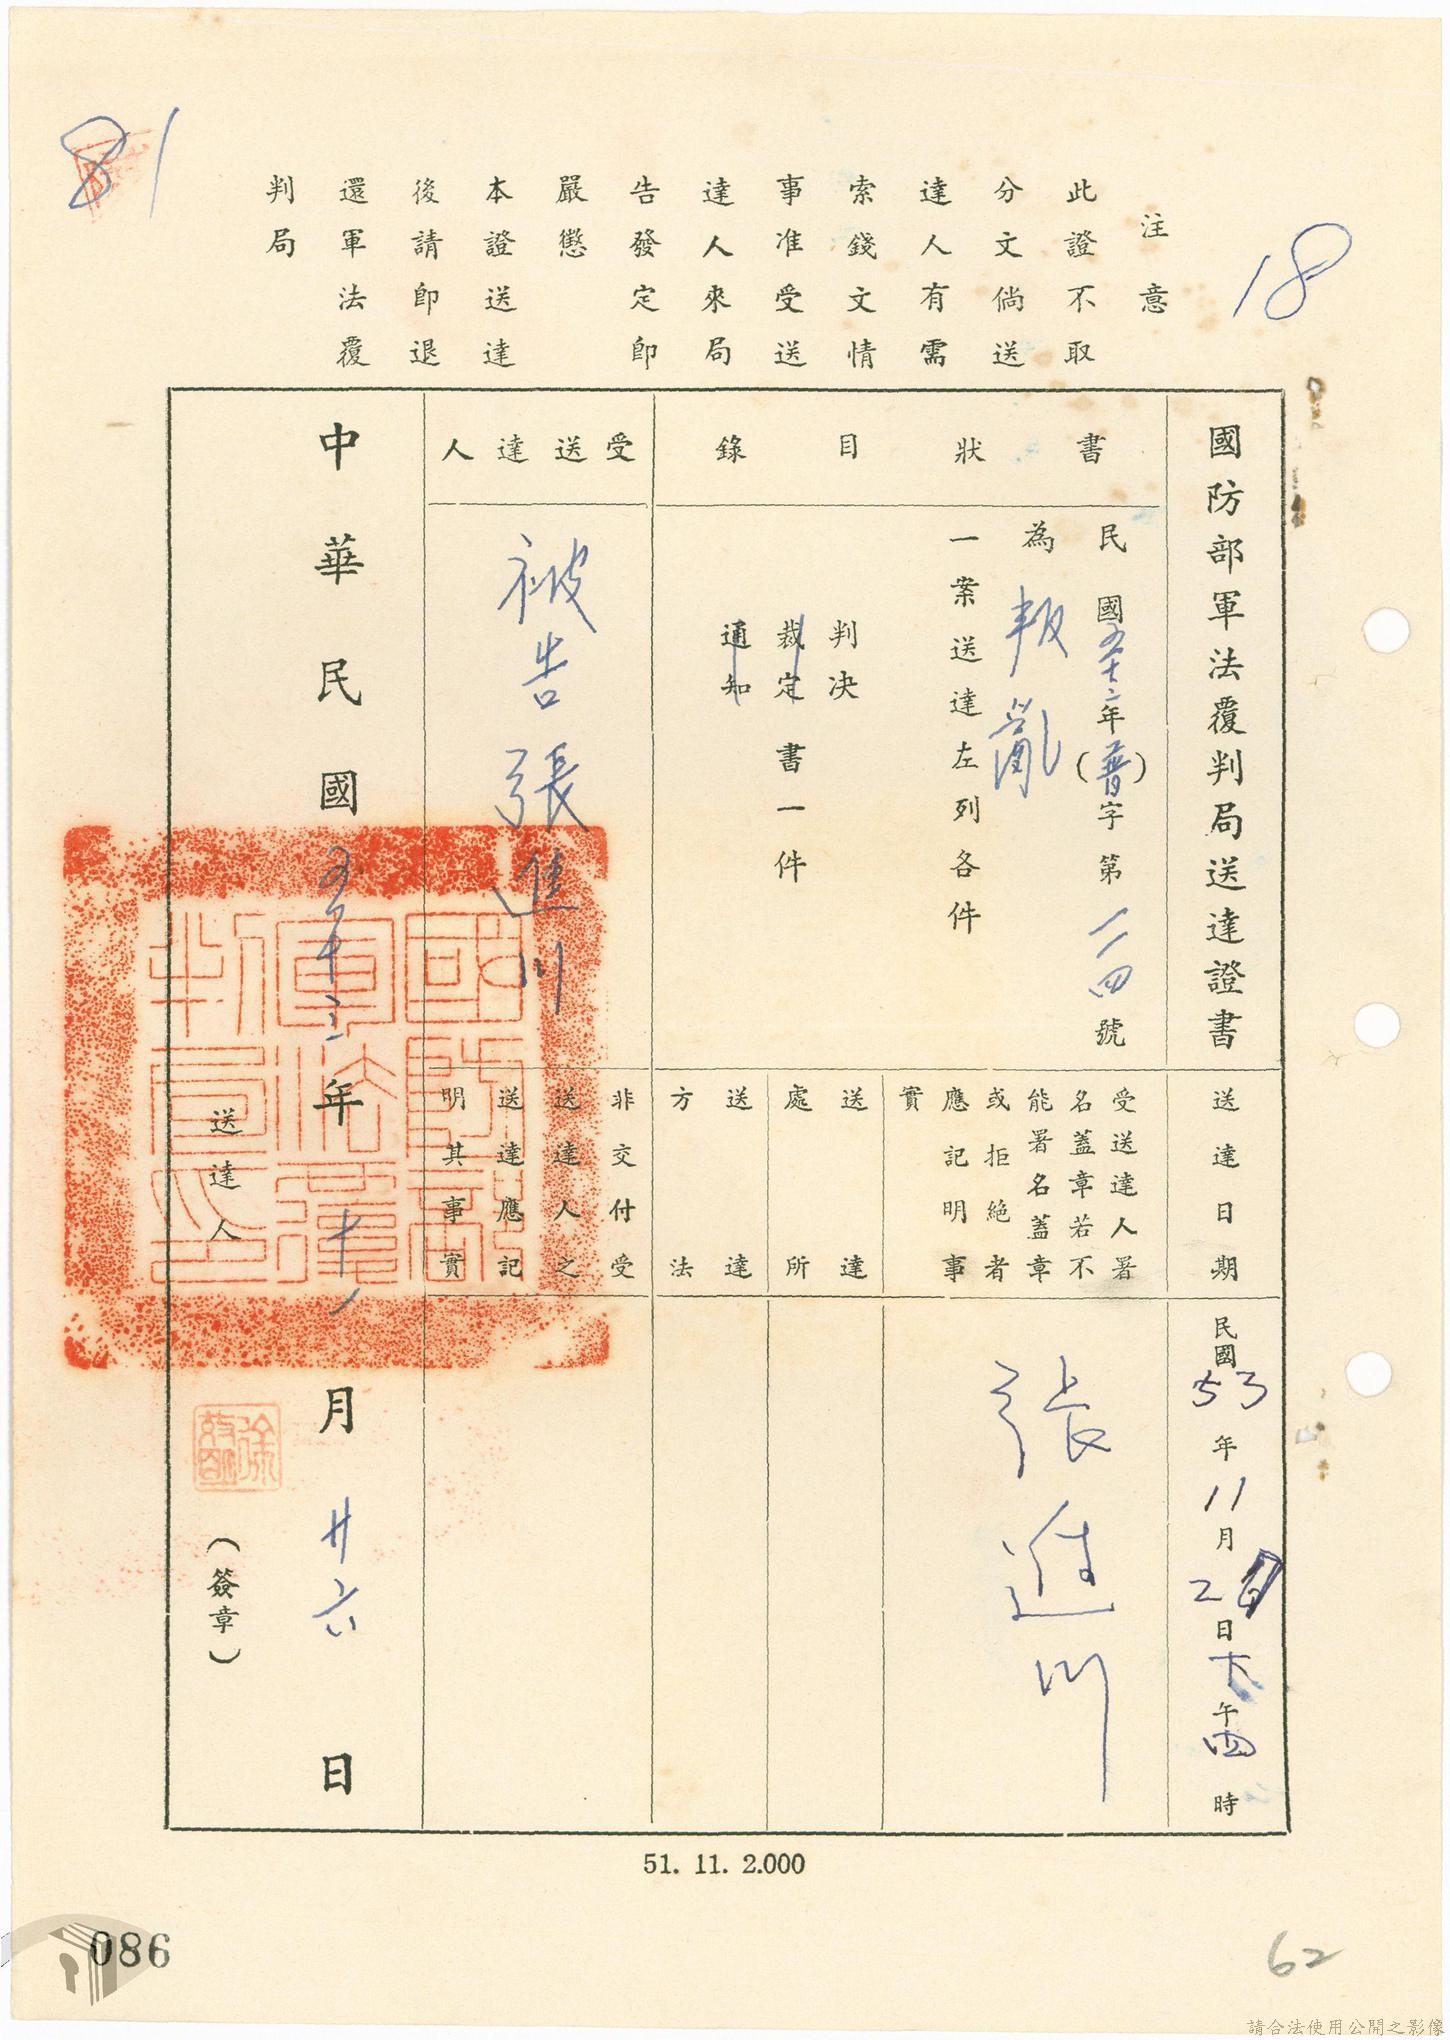 81
18
注意
此證不取
分文倘送
達人有需
索錢文情
事准受送
達人來局
告發定卽
嚴懲
本證送達
後請卽退
還軍法覆
判局
國防部軍法覆判局送達證書
書狀目錄
民國五十三年(普)字第一一四號
為叛亂
一案送達左列各件
判決
裁定書一件
通知
受送達人
被告張進川
送達日期
民國53年11月2日下午四時
受送達人署
名蓋章若不
能署名蓋章
或拒絕者
應記明事
實
張進川
送達
處所
送達
方法
非交付受
送達人之
送達應記
明其事實
中華民國五十三年十一月廿六日
送達人
(簽章)
國防部
軍法覆
判局印
51. 11. 2.000
086
62
請合法使用公開之影像